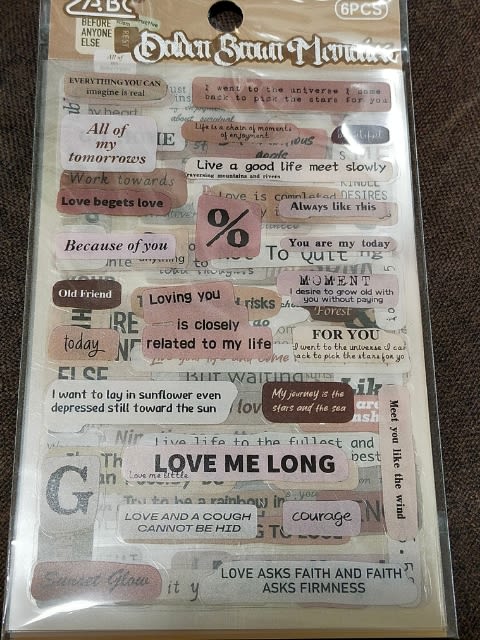 ABC
6PCS
BEFORE
ANYONE
ELSE
All of
Golden Brown Memories
EVERYTHING YOU CAN
imagine is real
I went to the universe I came
back to pick the stars for you
All of
my
tomorrows
Life is a chain of moments
of enjoyment
Live a good life meet slowly
traversing mountains and rivers
KINDLE
DESIRES
Work towards
Love begets love
%
Love is complet
Always like this
Because of you
You are my today
To Quit
MOMENT
I desire to grow old with
you without paying
Old Friend
Loving you
risks
is closely
related to my life
Forest
FOR YOU
I went to the universe I ca
back to pick the stars for yo
today
ELSE
But waiting
I want to lay in sunflower even
depressed still toward the sun
My journey is the
stars and the sea
Meet you like the wind
Live life to the fullest and
best
LOVE ME LONG
Love me little
G
Try to be a rainbow in
LOVE AND A COUGH
CANNOT BE HID
courage
Sunset Glow
it y
LOVE ASKS FAITH AND FAITH
ASKS FIRMNESS